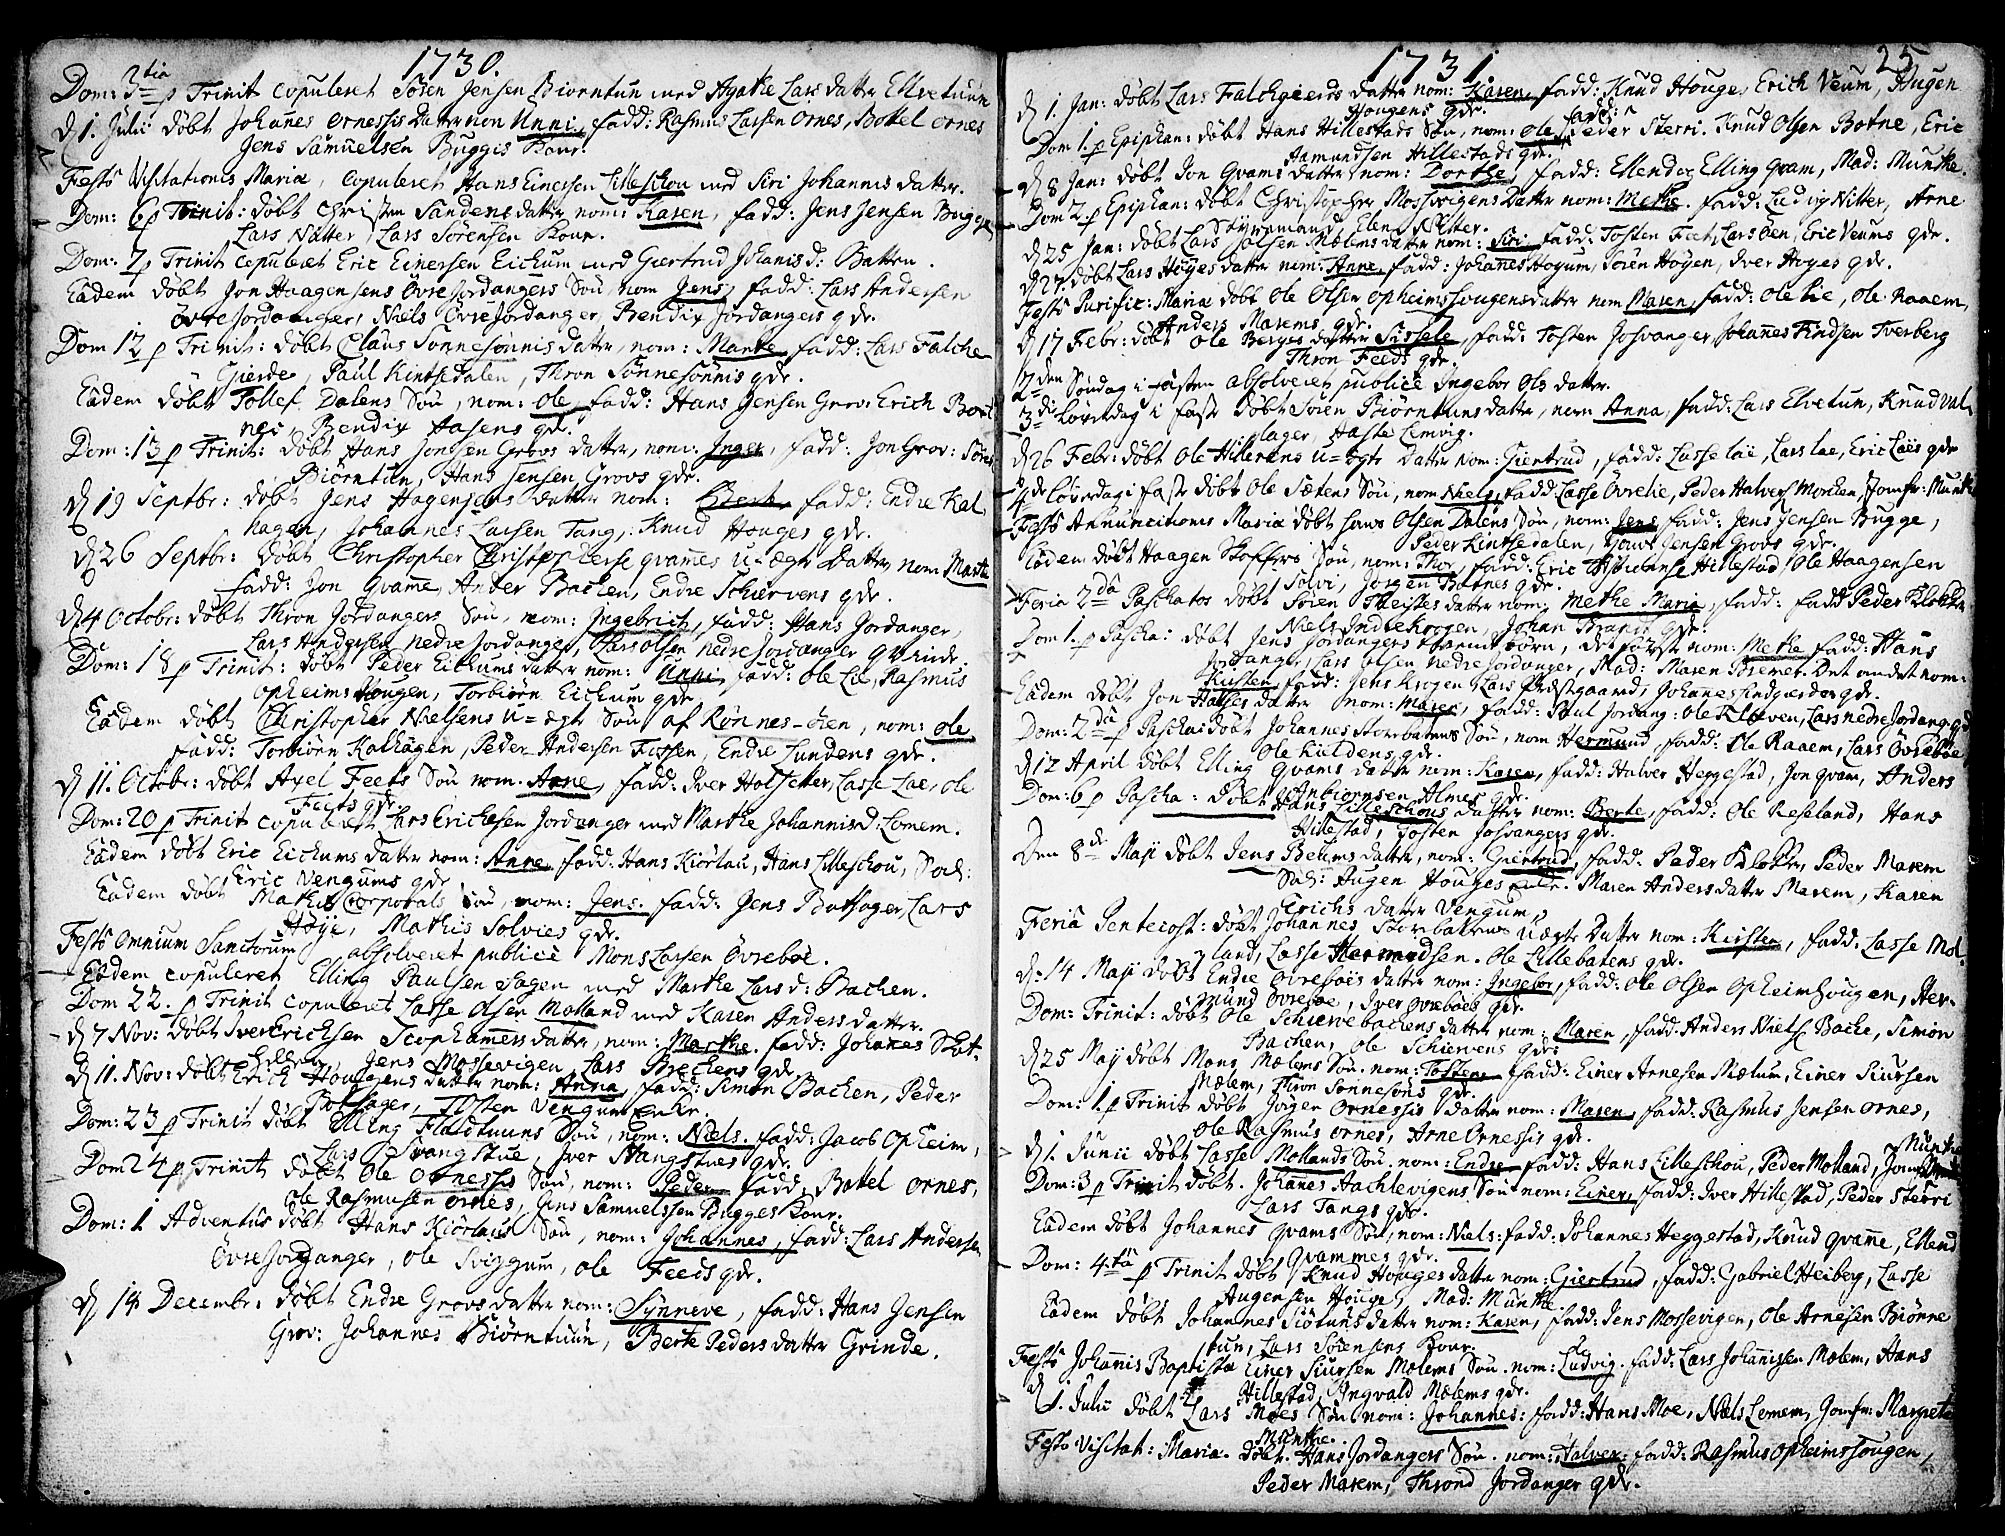 1730.
Dom: 3tia p Trinit copuleret Sören Jensen Biorntun med Agathe Lars datter Elvetuun
D 1. Julii döbt Johañes Ornessis datter nom Unni, fadd: Rasmus Larsen Ornes, Botel Ornes
Jens Samuelsen Bugges Kone.
Festo Visitationis Mariæ, copuleret Hans Einersen Lilleschou med Siri Johannis datter.
Dom: 6 p Trinit: döbt Christen Sandens datter nom: Karen, fadd: Jens Jensen Bugge,
Lars Nitter, Lars Sörensen Kone.
Dom: 7 p Trinit copuleret Eric Einersen Eickum med Giertrud Johanisd: Batten.
Eadem döbt Jon Haagensens Övre Jordangers Sön, nom Jens, fadd: Lars Andersen
Övre Jordanger, Niels Övre Jordanger, Bendix Jordangers qdr.
Dom 12 p Trinit: döbt Claus Sonnesonnis datter, nom: Marthe, fadd: Lars Falche
Gierde, Paul Kintsedalen, Thron Sönnesönnis qdr.
Eadem döbt Tollef Dalens Sön, nom: Ole, fadd: Hans Jensen Grov: Erich Bort
nes Bendix Hasens qdr.
Dom: 13 p Trinit: döbt Hans Jensen Grovs datter, nom: Inger, fadd: Jon Grov: Sören
Biörntun, Hans Jensen Grovs qdr.
D 19 Septbr: döbt Jens Hagensens datter nom: Berte fadd: Endre Kal
hagen, Johannes Larsen Tang, Knud Houges qdr.
D 26 Septbr: döbt Christopher Christophersen qvames u-ægte datter, nom: Marte
fadd: Jon Qvame, Anber Bachen, Endre Schiervens qdr.
D 4 Octobr: döbt Thron Jordangers Sön, nom: Ingebrict, fadd: Hans Jordanger,
Lars Andersen Nedre Jordanger, Lars Olsen Nedre Jordanger qvinde.
Dom: 18 p Trinit: döbt Peder Eickums datter nom: Unni, fadd: Ole Lie, Rasmus
Opheims Hougen, Torbiörn Eickum qdr.
Eadem döbt Christopher Nielsens u-ægte Sön af Rönnes-öien, nom: Ole
fadd: Torbiörn Kalhagen, Peder Andersen Fossen, Endre Lundens qdr.
D 11. Octobr: döbt Axel Feets Sön nom: Arne, fadd: Iver Holsetter, Lasse Lae, Ole
Feets qdr.
Dom: 20 p Trinit copuleret Lars Erichsen Jordanger med Marthe Johannisd: Lomem.
Eadem döbt Eric Eickums datter nom: Anne, fadd: Hans Kiörlau, Hans Lilleschou, Sod:
Eric Vengums qdr.
Eadem döbt Mathis Corporals Sön, nom: Jens. fadd: Jens Bolsager, Lars
Höije, Mathis Solvies qdr.
Festo Omnium Sanctorum absolveret publice Mons Larsen Övreböe.
Eadem copuleret Elling Paulsen Hagen med Marthe Lars d: Bachen.
Dom 22. p Trinit copuleret Lasse Olsen Molland med Karen Anders datter.
D 7 Nov: döbt Iver Erichsen Scophamers datter, nom: Marthe. fadd: Johanes Skot-
Jens Mossevigen, Lars Brechens qdr.
D 11. Nov: döbt Erich Hougens datter nom: Anna, fadd: Simon Bachen, Peder
Bolsager, Tosten Vengum Enke.
Dom: 23 p Trinit döbt Elling Flaatuuns Sön, nom: Niels. fadd: Jacob Opheim,
Lars Svangstue, Iver Stangstues qdr.
Dom 24 p Trinit döbt Ole Ornessis Sön, nom: Peder fadd Bottel Ornes,
Ole Rasmusen Ornes, Jens Samuelssen Bugges Kone.
Dom: 1 Adventus döbt Hans Kiörlaus Sön, nom: Johannes, fadd: Lars Andersen
Övre Jordanger, Ole Sviggum, Ole Feeds qdr.
D 14 Decembr: döbt Endre Grovs datter nom: Synneve, fadd: Hans Jensen
Grov: Johannes Biörntuun, Berte Peders datter Grinde.
1731
25
D 1. Jan: döbt Lars Falchgierds datter nom: Karen, fadd: Knud Houges Erich Veum, Hugen
Hougens qdr.
Dom 1. p Epiphan: döbt Hans Hillestads Sön, nom: Ole, fadd: Peder Sterri. Knud Olsen Botne, Eric
Aamundsen Hillestads qdr.
D 8 Jan: döbt Jon Qvams datter nom: Dorthe, fadd: Ellend og Elling Qvam, Mad: Munthe.
Dom 2. p Epiphan: döbt Christopher Mossevigens datter nom: Methe. fadd: Ludvig Nitter, Arne
Elen Nitter.
D 25 Jan: döbt Lars Joensen Mælems datter nom: Siri fadd: Tosten Feet, Lars Öen, Eric Veums qdr.
D 27. döbt Lars Höyes datter nom: Anne, fadd: Johañes Hoyum, Sören Höyen, Iver Höyes qdr.
Festo Purific: Mariæ döbt Ole Olsen Opheimshougens datter nom Maren, fadd: Ole Lie, Ole Raaem,
Anders Marems qdr.
D 17 Febr: döbt Ole Berges datter Sissele, fadd: Tosten Josvanger, Johañes Findsen Tverberg
Thron Feeds qdr.
2den Söndag i fasten absolveret publicè Ingebor Ols datter.
3di Löverdag i fast döbt Sören Biörntuns datter, nom Anna, fadd: Lars Elvetun, Knud Val
lager, Lemvig.
D 26 Febr: döbt Ole Hillerens u-ægte datter nom: Giertrud, fadd: Lasse Lae, Lars Lae, Eric Laes qdr
4de Löverdag i fast döbt Ole Sætens Sön, nom Niels, fadd: Lasse Ovrelie, Peder Halvers Morchen, Jomfr: Munthe
Festo Annuncitionis Mariæ döbt Hans Olsen Dalens Sön, nom: Jens, fadd: Jens Jensen Bugge,
Peder Kintsedalen, Jensen Grovs qdr.
Eadem döbt Haagen Skoffers Sön, nom: Thor, fadd: Eric Hillestad, Ole Haagensen
Solvi, Jörgen Botnes qdr.
Feria 2da Paschatos döbt Sören Theistes datter nom: Methe Maria, fadd: fadd Peder Klokker
Niels Indtekrogen, Johan Brands qdr.
Dom 1. p Pascha: döbt Jens Jordangers tvende börn, det förste nom: Methe, fadd: Hans
Jordanger, Lars Olsen Nedre Jordanger, Mad: Maren Bremer. Det andet nom:
Kirsten, fadd: Jens Krogen, Lars Præstgaard, Johanes Findgierdes qdr.
Eadem döbt Jon Halses datter nom: Maren, fadd: Paul Jordang: Ole Kleven, Lars nedre Jordang: qdr
Dom: 2da p Pascha: döbt Johannes Storebatens Sön, nom Hermund, fadd: Ole Raaem, Lars Övreböe,
Ole Lieldens qdr.
D 12 April döbt Elling Qvams datter nom: Karen, fadd: Halver Heggestad, Jon Qvam, Anders
Anbiornsen Almes qdr.
Dom: 6 p Pascha: döbt Hans Lilleschous datter nom: Berte, fadd: Ole Neseland, Hans
Hillestad, Josten Josvangers qdr.
Den 8de Maji döbt Jens Beums datter, nom: Giertrud, fadd: Peder Klokker, Peder Marem
Sod: Augen Houges Enke. Maren Anders datter Marem, Karen
Erichs datter Vengum,
Feria Pentecost: döbt Johannes Storebattens uægte datter nom: Kirsten, fadd: Lasse Mol
land, Lasse Hermundsen. Ole Lillebatens qdr.
D: 14 Maji döbt Endre Ovreböes datter nom: Ingebor, fadd: Ole Olsen Opheimhougen, Her-
mund Övreböe, Iver Ovreböes qdr.
Dom: Trinit: döbt Ole Schiervebachens datter nom: Maren, fadd: Anders Niels. Bache, Simon
Bachen, Ole Schiervens qdr.
D 25 Maij döbt Mons Mælems Sön nom: Tosten, fadd: Einer Arnesen Mætum, Einer Siursen
Mælem, Thron Sönnesöns qdr.
Dom: 1. p Trinit döbt Jörgen Ornessis datter nom: Maren, fadd: Rasmus Jensen Ornes,
Ole Rasmus Ornes, Arne Ornessis qdr.
D 1. Junii döbt Lasse Mollands Sön nom: Endre fadd: Hans Lilleschou, Peder Molland, Jomfr Munthe
Dom: 3 p Trinit döbt. Johañes Hachlevigens Sön nom: Einer, fadd: Iver Hillestad, Peder Sterri
Lars Tangs qdr.
Eadem döbt Johannes Qvams Sön, nom: Niels: fadd: Johannes Heggestad, Knud Qvame, Ellend
Qvammes qdr.
Dom: 4ta p Trinit döbt Knud Houges datter nom: Giertrud, fadd: Gabriel Heiberg, Lasse
Augensen Houge, Mad: Munthe.
Eadem döbt Johannes Siötuns datter nom: Karen, fadd: Jens Mossevigen, Ole Arnesen Biörne
tun, Lars Sörensens Kone.
Festo Johanis Baptistæ Einer Siursen Mælems Sön nom: Ludvig. fadd: Lars Johanissen Mælem, Hans
Hillestad, Ingvald Mælems qdr.
D 1. Julii döbt Lars Moes Sön nom: Johannes: fadd: Hans Moe, Niels Lomem, Jomfr: Margrete
Munthe.
Festo Visitat: Mariæ. döbt. Hans Jordangers Sön. nom: Halver: fadd: Rasmus Opheimshougen,
Peder Marem, Thrond Jordanger qdr.